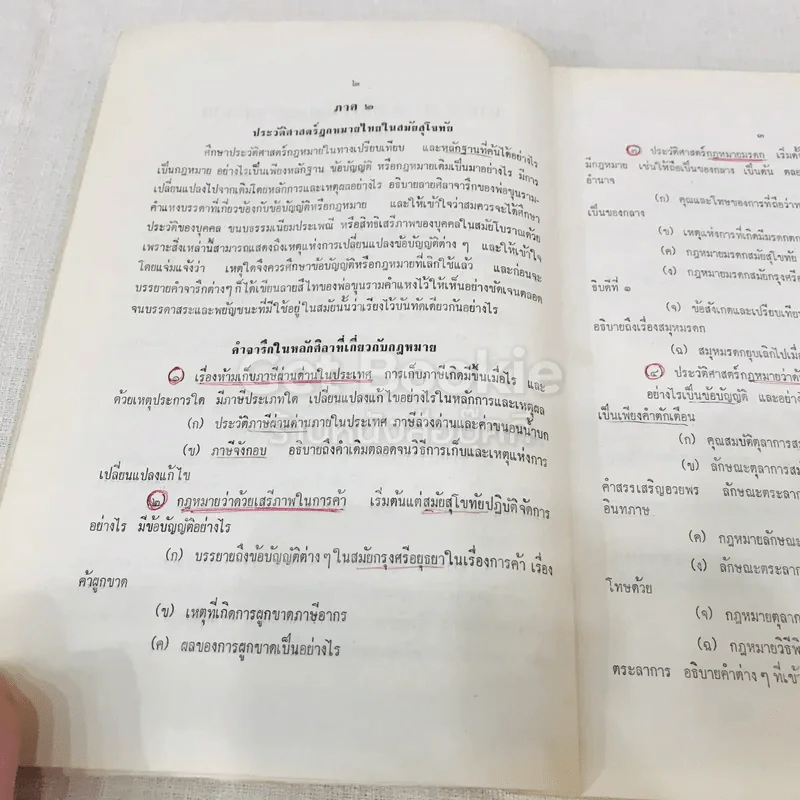 ๒
ภาค ๒
ประวัติศาสตร์กฎหมายไทยในสมัยสุโขทัย
ศึกษาประวัติศาสตร์กฎหมายในทางเปรียบเทียบ และหลักฐานที่ค้นได้อย่างไร
เป็นกฎหมาย อย่างไรเป็นเพียงหลักฐาน ข้อบัญญัติ หรือกฎหมายเดิมเป็นมาอย่างไร มีการ
เปลี่ยนแปลงไปจากเดิมโดยหลักการและเหตุผลอย่างไร อธิบายลายศิลาจารึกของพ่อขุนราม-
คำแหงบรรดาที่เกี่ยวข้องกับข้อบัญญัติหรือกฎหมาย และให้เข้าใจว่าสมควรจะได้ศึกษา
ประวัติของบุคคล ขนบธรรมเนียมประเพณี หรือสิทธิเสรีภาพของบุคคลในสมัยโบราณด้วย
เพราะสิ่งเหล่านี้สามารถแสดงถึงเหตุแห่งการเปลี่ยนแปลงข้อบัญญัติต่าง ๆ และให้เข้าใจ
โดยแจ่มแจ้งว่า เหตุใดจึงควรศึกษาข้อบัญญัติหรือกฎหมายที่เลิกใช้แล้ว และก่อนจะ
บรรยายคำจารึกต่างๆ ก็ได้เขียนลายสือไทของพ่อขุนรามคำแหงไว้ให้เห็นอย่างชัดเจนตลอด
จนบรรดาสระและพยัญชนะที่มีใช้อยู่ในสมัยนั้นว่าเรียงไว้บันทัดเดียวกันอย่างไร
คำจารึกในหลักศิลาที่เกี่ยวกับกฎหมาย
๑ เรื่องห้ามเก็บภาษีผ่านด่านในประเทศ การเก็บภาษีเกิดมีขึ้นเมื่อไร และ
ด้วยเหตุประการใด มีภาษีประเภทใด เปลี่ยนแปลงแก้ไขอย่างไรในหลักการและเหตุผล
(ก) ประวัติภาษีผ่านด่านภายในประเทศ ภาษีล่วงด่านและค่าขนอนน้ำบก
(ข) ภาษีจังกอบ อธิบายถึงคำเดิมตลอดจนวิธีการเก็บและเหตุแห่งการ
เปลี่ยนแปลงแก้ไข
๒ กฎหมายว่าด้วยเสรีภาพในการค้า เริ่มต้นแต่สมัยสุโขทัยปฏิบัติจัดการ
อย่างไร มีข้อบัญญัติอย่างไร
(ก) บรรยายถึงข้อบัญญัติต่าง ๆ ในสมัยกรุงศรีอยุธยาในเรื่องการค้า เรื่อง
คว้ผูกขาด
(ข) เหตุที่เกิดการผูกขาดภาษีอากร
(ค) ผลของการผูกขาดเป็นอย่างไร
Get Bookie
ร้านหนังสือบุ๊คกี้
๓
๓ ประวัติศาสตร์กฎหมายมรดก เริ่มต้
มีกฎหมาย เช่นให้ถือเป็นของกลาง เป็นต้น ตลอ
อำนาจ
(ก) คุณและโทษของการที่ถือว่าท
เป็นของกลาง
(ข) เหตุแห่งการที่เกิดมีมรดกตก
(ค) กฎหมายมรดกสมัยสุโขทัย
(ง) กฎหมายมรดกสมัยกรุงศรี
ธิบดีที่ ๑
(จ) ข้อสังเกตและเปรียบเทีย
อธิบายถึงเรื่องสมุหมรดก
(ฉ) สมุหมรดกยุบเลิกไปเมื่
๔ ประวัติศาสตร์กฎหมายว่าด้
อย่างไรเป็นข้อบัญญัติ และอย่า
เป็นเพียงคำตักเตือน
(ก) คุณสมบัติตุลาการส
(ข) ลักษณะตุลาการสม
คำสรรเสริญอวยพร ลักษณะตระลาก
อินทภาษ
(ค) กฎหมายลักษณ
(ง) ลักษณะตระลา
โทษด้วย
(จ) กฎหมายตุลาก
(ฉ) กฎหมายวิธีพิ
ตระลาการ อธิบายคำต่าง ๆ ที่เข้า